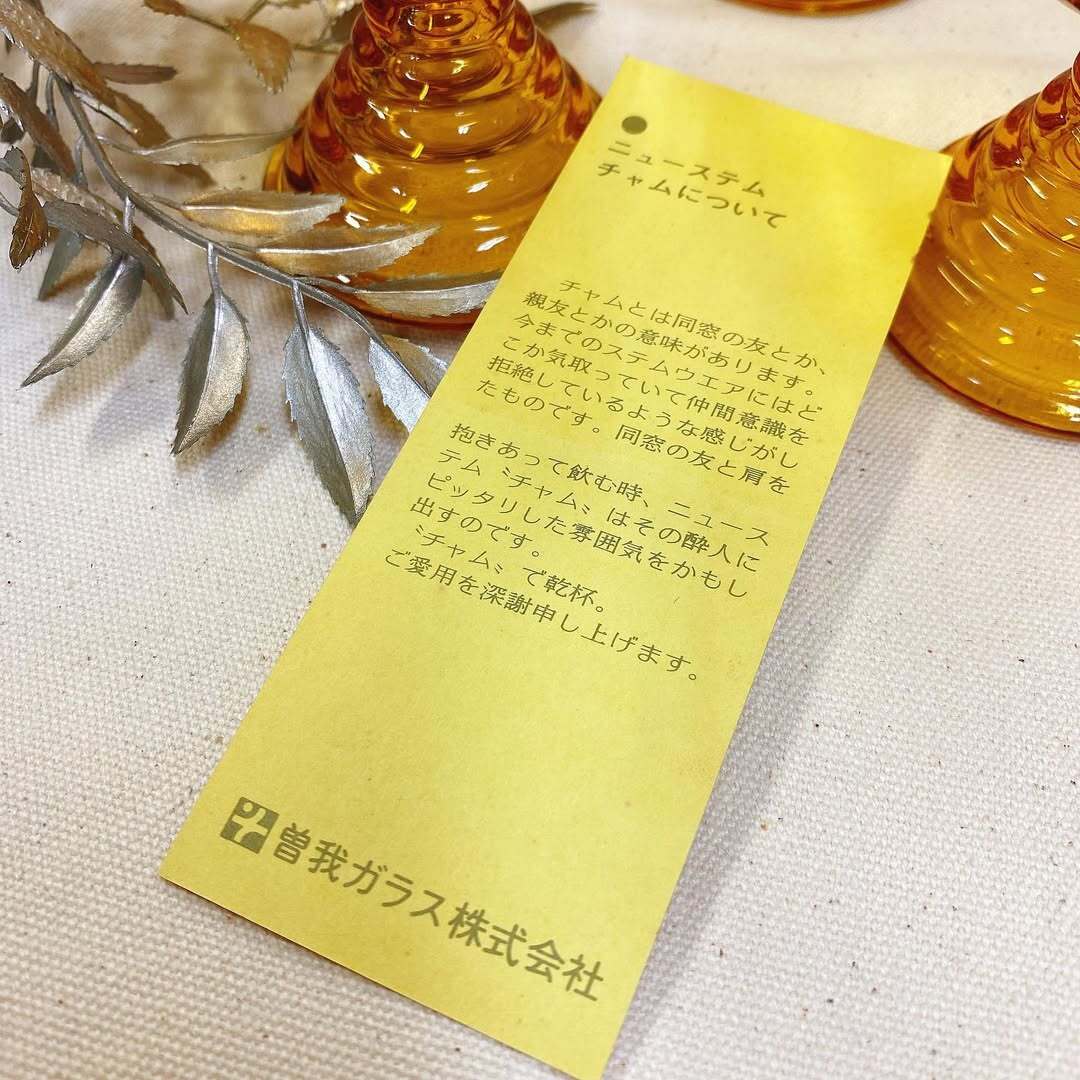 ●
ニューステム
チャムについて
チャムとは同窓の友とか、
親友とかの意味があります。
今までのステムウエアにはど
こか気取っていて仲間意識を
拒絶しているような感じがし
たものです。同窓の友と肩を
抱きあって飲む時、ニュース
テム〝チャム〟はその酔人に
ピッタリした雰囲気をかもし
出すのです。
〝チャム〟で乾杯。
ご愛用を深謝申し上げます。
曽我ガラス株式会社